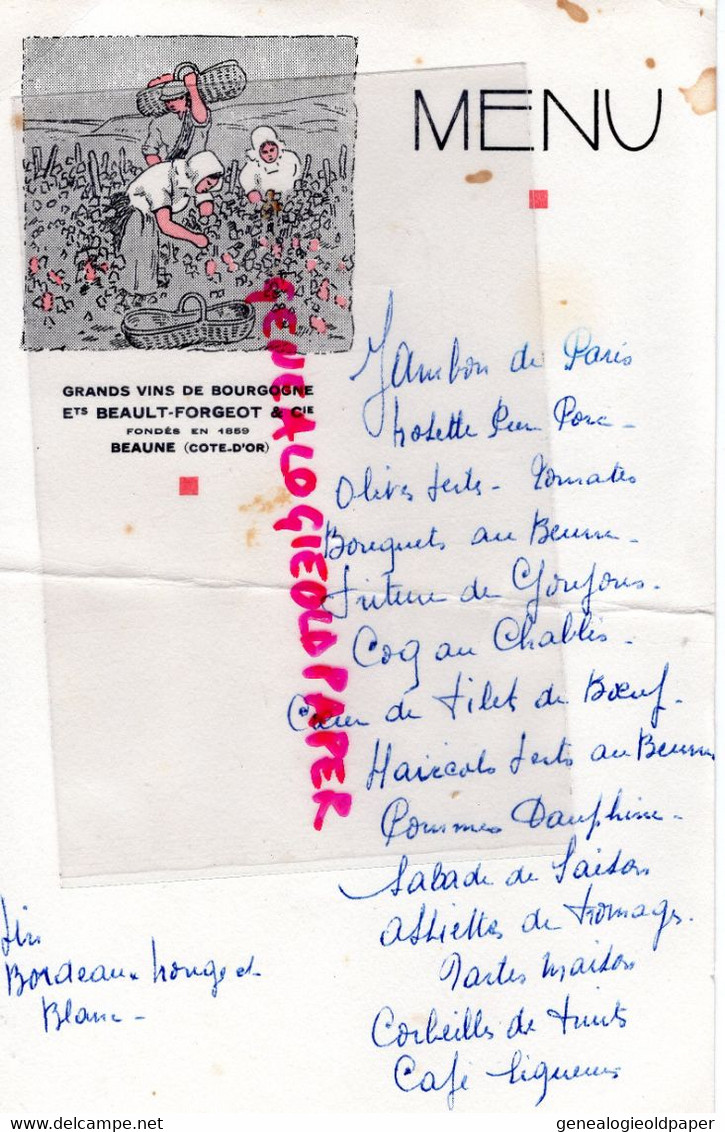 MENU
GRANDS VINS DE BOURGOGNE
ETS BEAULT-FORGEOT & CIE
FONDÉS EN 1859
BEAUNE (COTE-D'OR)
GENEALOGIEOLDPAPER
Jambon de Paris
Rosette Pur Porc -
Olives Vertes - Tomates
Bouquets au Beurre -
Friture de Goujons -
Coq au Chablis -
Cœur de Filet de Bœuf -
Haricots Verts au Beurre
Pommes Dauphine -
Salade de Saison
Assiettes de Fromages.
Tartes Maison
Corbeilles de Fruits
Café Liqueurs
Vin
Bordeaux Rouge et
Blanc -
genealogieoldpaper